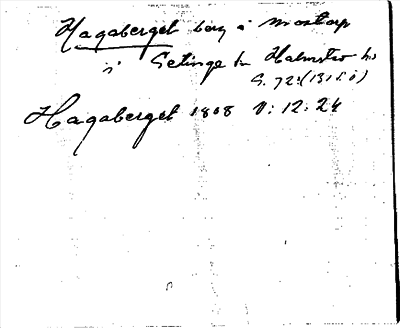 Hagaberget berg i Mostorp
i Getinge sn Halmstad hd
S. 72:(1315.0)
Hagaberget 1808 V:12:24